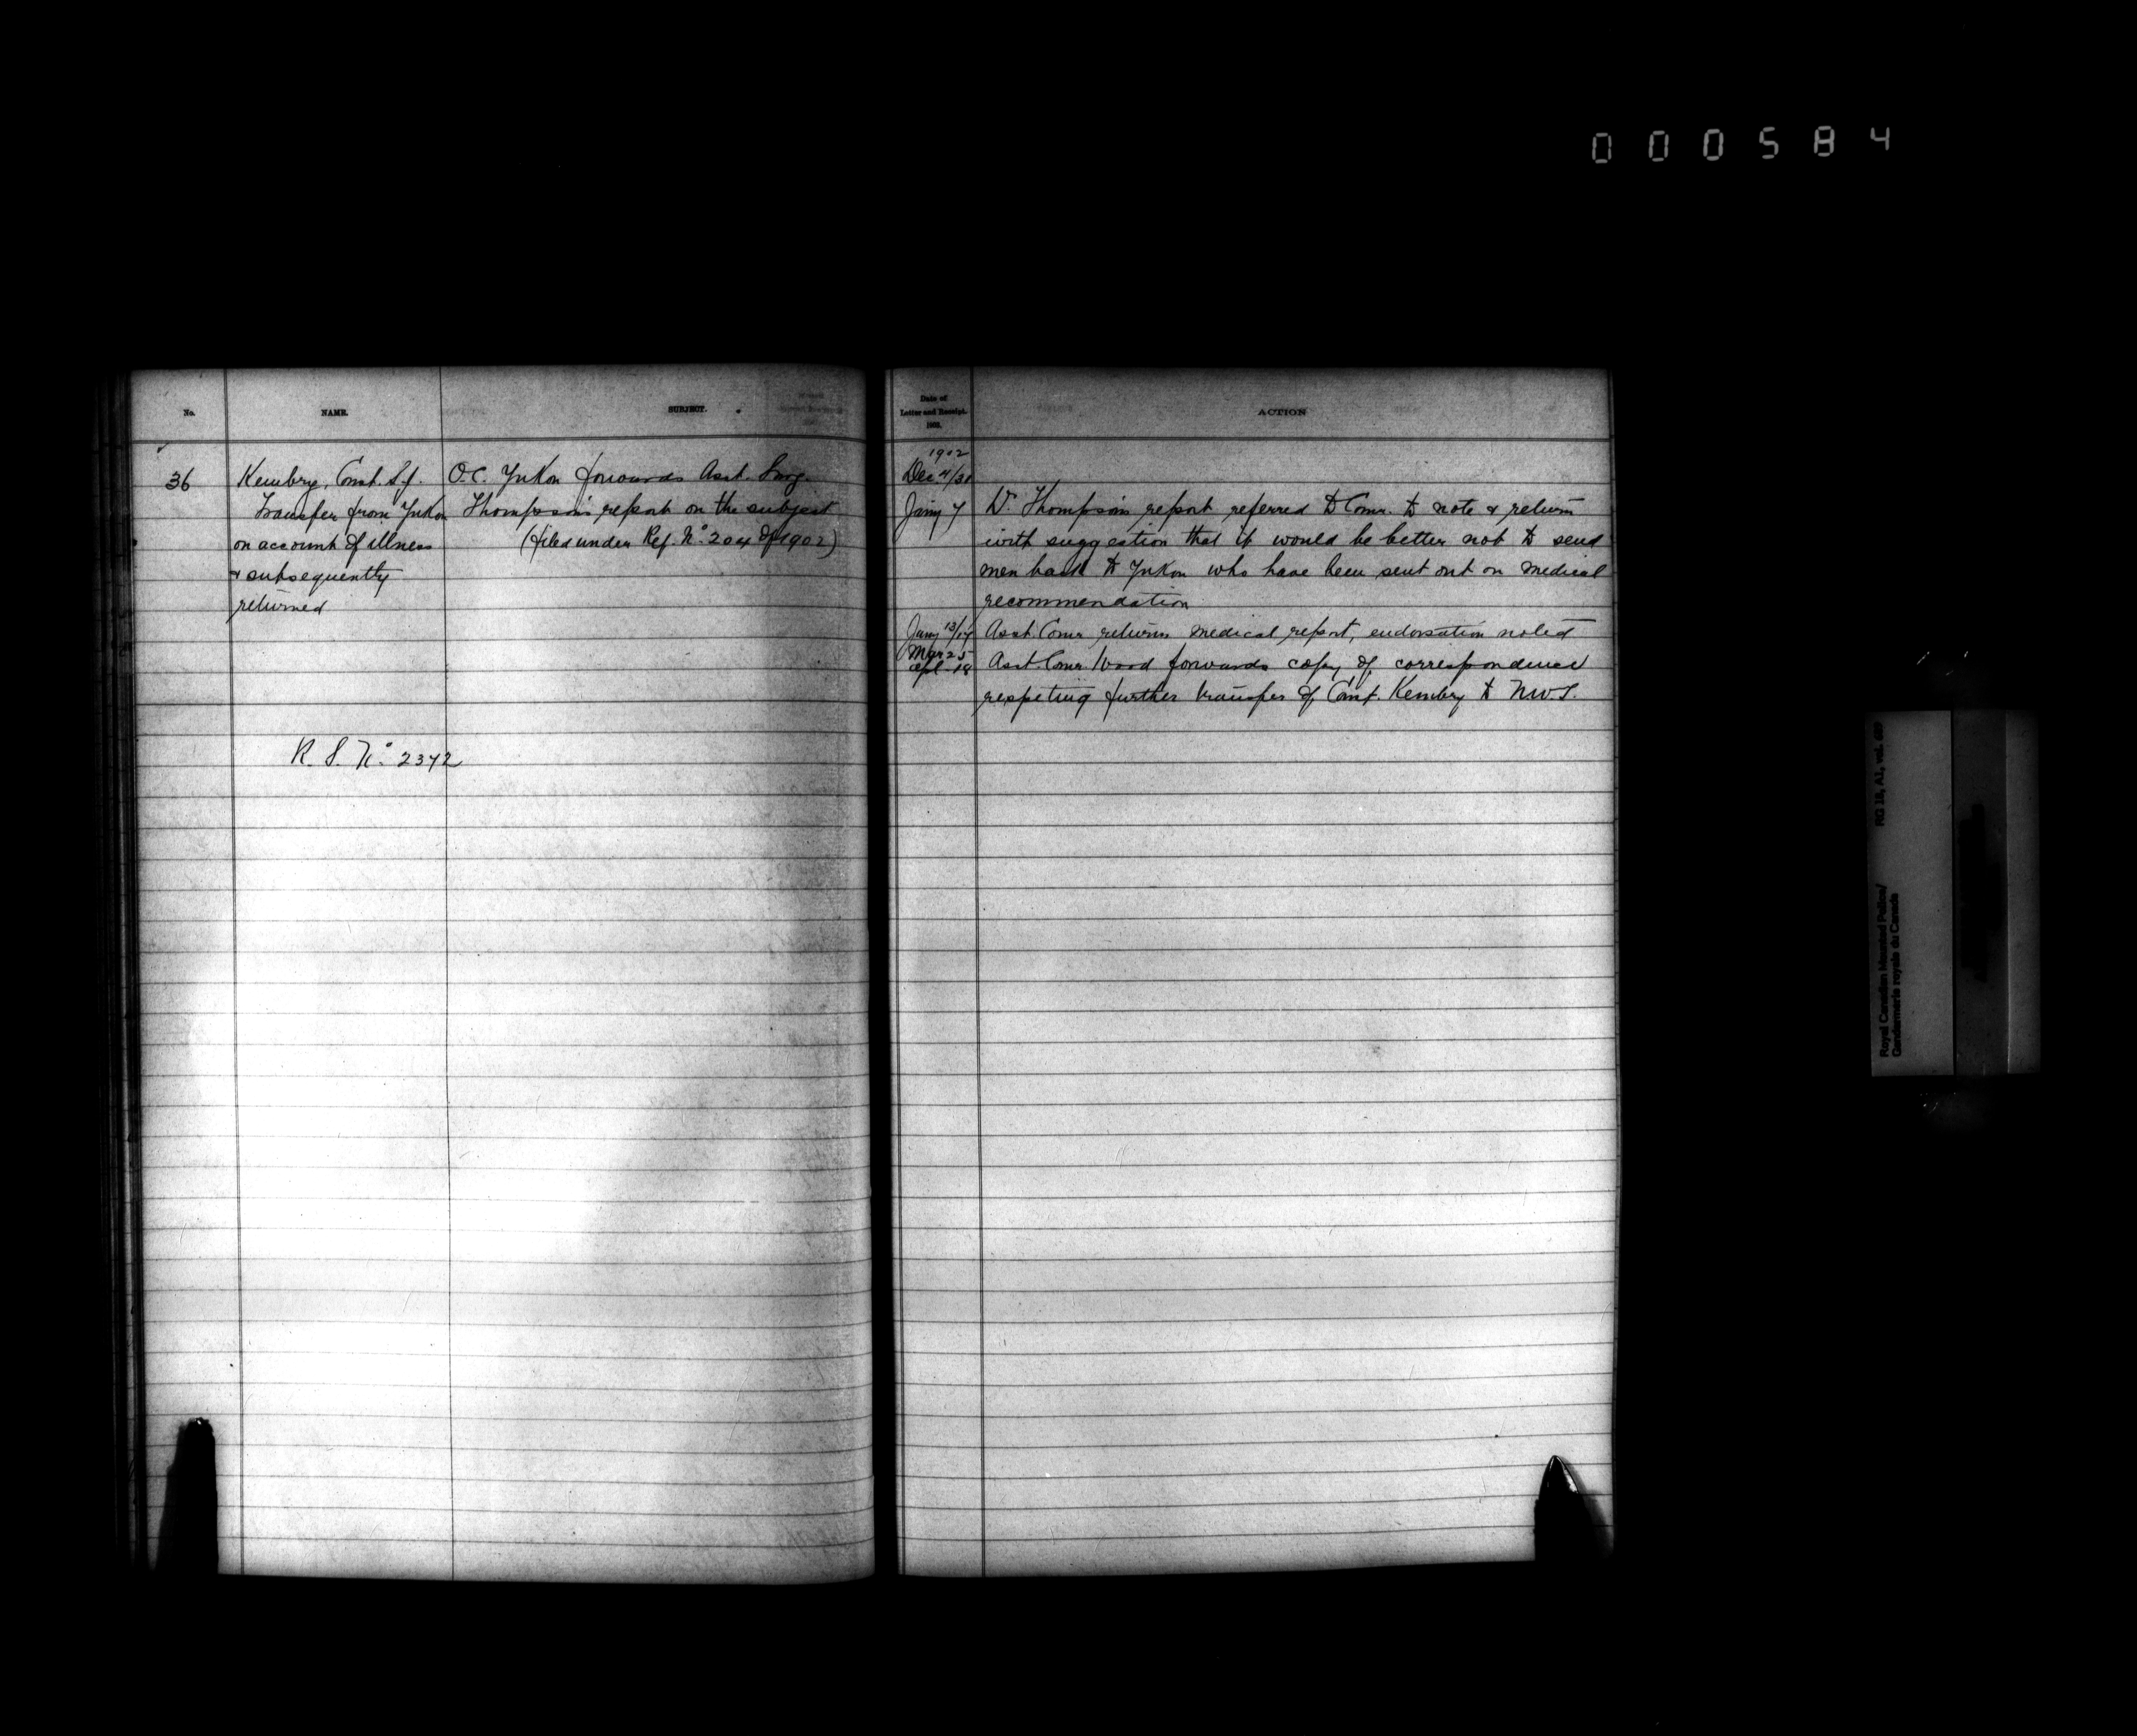 000584
No.
NAME.
SUBJECT.
36
Kembry, Const. S.J.
Transfer from Yukon
on account of illness
& subsequently
returned
O.C. Yukon forwards Asst. Surg.
Thompson's report on the subject
(filed under Ref. No. 204 of 1902)
R. S. No. 2372
Date of
Letter and Receipt.
1903.
ACTION
1902
Dec 4/31
Jany 7
Dr. Thompson's report referred to Comr. to note & return
with suggestion that it would be better not to send
men back to Yukon who have been sent out on medical
recommendation
Jany 13/17
Asst. Comr. returns medical report, endorsation noted
Mar 25
Apl. 18
Asst. Comr. Wood forwards copy of correspondence
respeting further transfer of Const. Kembry to N.W.T.
RG 18, A1, vol.
Royal Canadian Mounted Police/
Gendarmerie royale du Canada